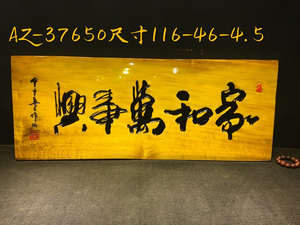 AZ-37650尺寸116-46-4.5
家和萬事興